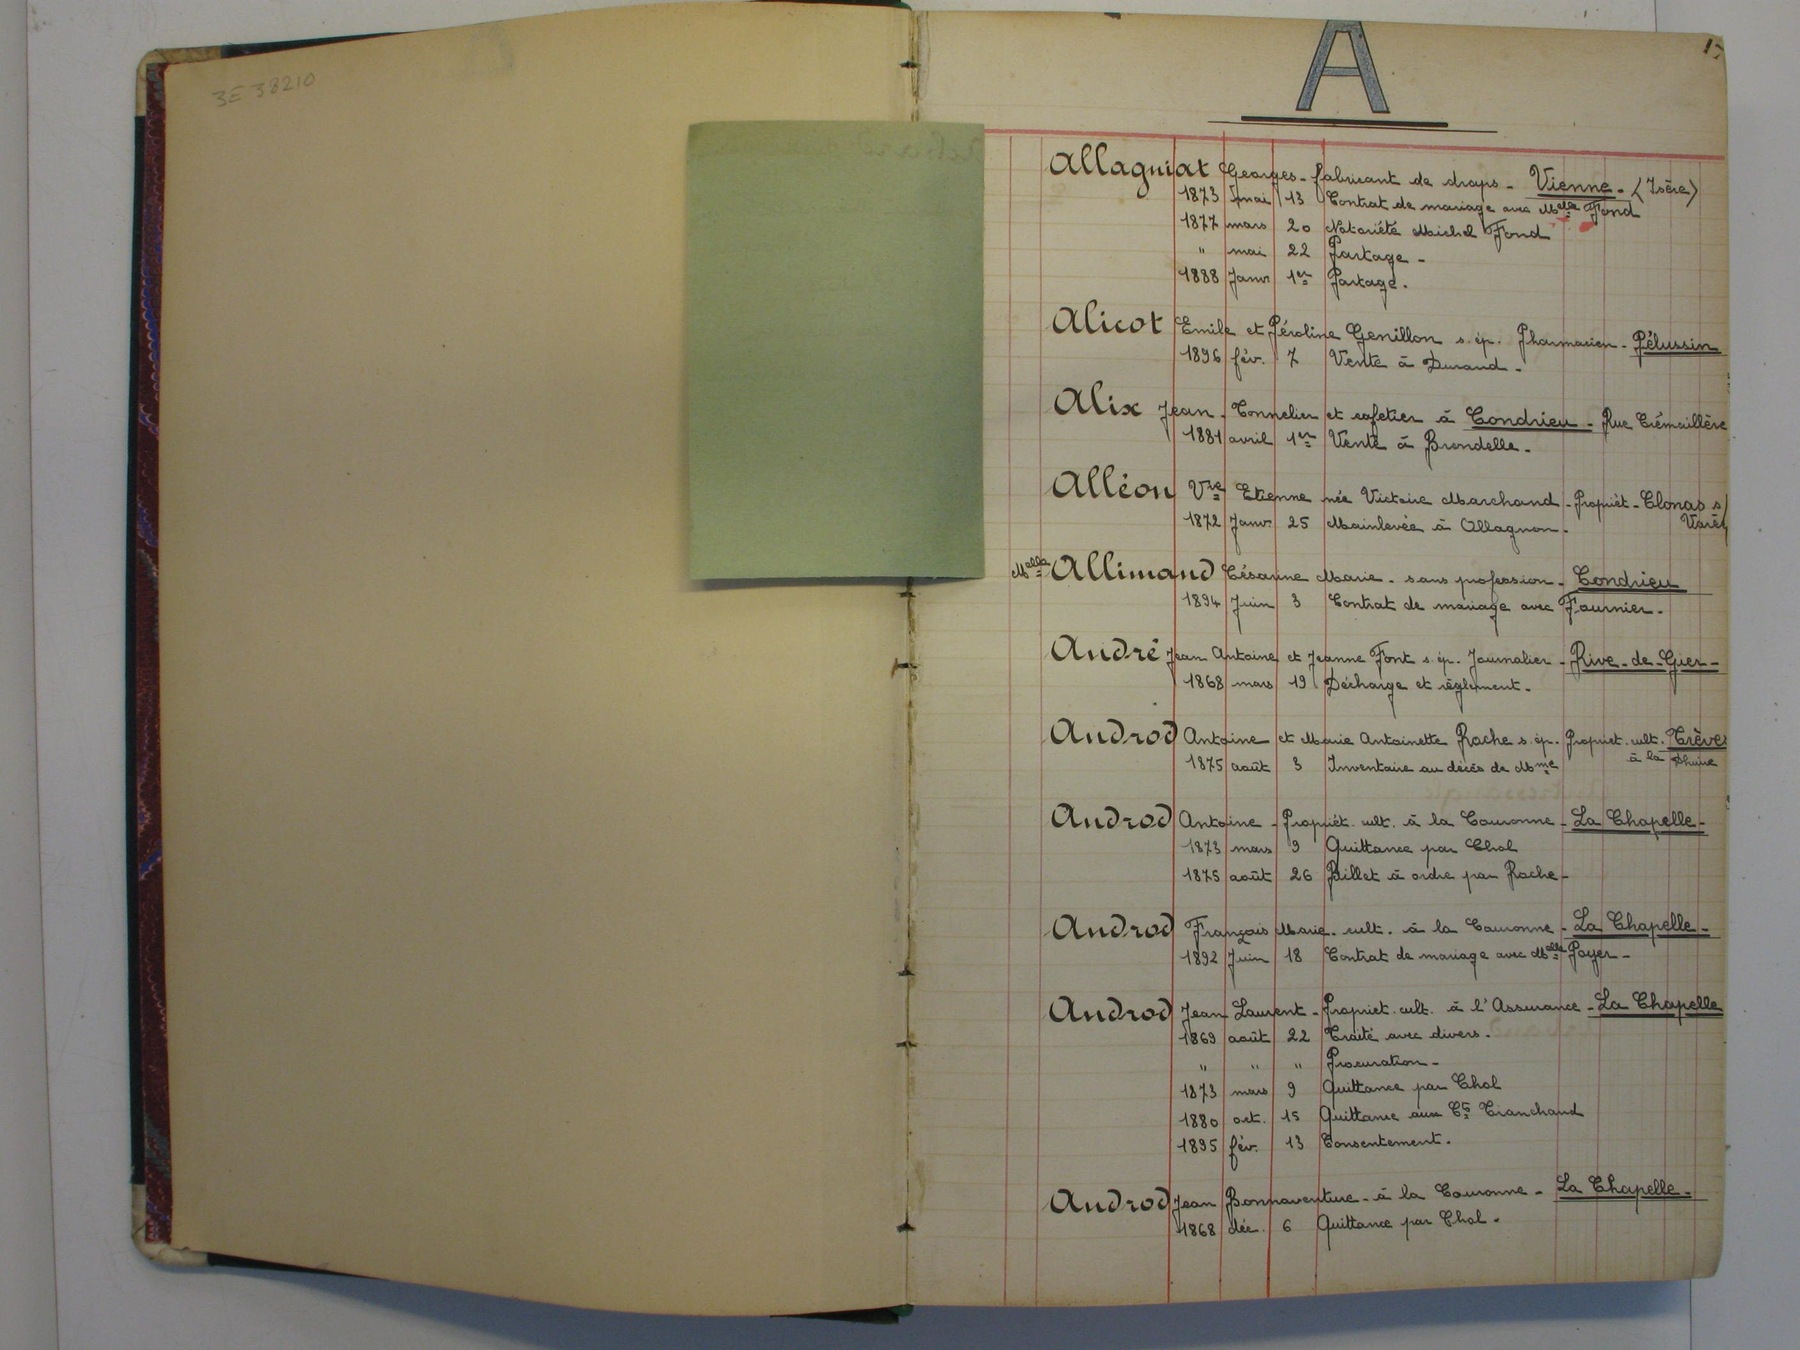 3E 38210
A
Allagniat Georges - fabricant de draps - Vienne - (Isère)
1873 mai 13 Contrat de mariage avec Melle Fond
1877 mars 20 Notoriété Michel Fond
" mai 22 Partage -
1888 Janv. 1er Partage.
Alicot Emile et Péroline Genillon s. ép. Pharmacien - Pélussin
1896 fév. 7 Vente à Durand -
Alix Jean - Tonnelier et cafetier à Condrieu - Rue Crémaillère
1881 avril 1er Vente à Brondelle -
Alléon Vve Etienne née Victoire Marchand - Propriét - Clonas s/
1872 Janv. 25 Mainlevée à Allagnon -
Melle Allimand Césarine Marie - sans profession - Condrieu
1894 Juin 3 Contrat de mariage avec Fournier -
André Jean Antoine et Jeanne Font s. ép. Journalier - Rive-de-Gier -
1868 mars 19 Décharge et règlement -
Androd Antoine et Marie Antoinette Roche s. ép. Propriet. cult. Trèves
1875 août 3 Inventaire au décès de Mme à la
Androd Antoine - Propriét. cult. à la Couronne - La Chapelle -
1873 mars 9 Quittance par Chol
1875 août 26 Billet à ordre par Roche -
Androd François Marie - cult. à la Couronne - La Chapelle -
1892 Juin 18 Contrat de mariage avec Melle Poyer -
Androd Jean Laurent - Propriet. cult. à l'Assurance - La Chapelle
1869 août 22 Traité avec divers -
" " " Procuration -
1873 mars 9 Quittance par Chol
1880 oct. 15 Quittance aux Cts Tranchand
1895 fév. 13 Consentement.
Androd Jean Bonnaventure - à la Couronne - La Chapelle -
1868 déc. 6 Quittance par Chol -